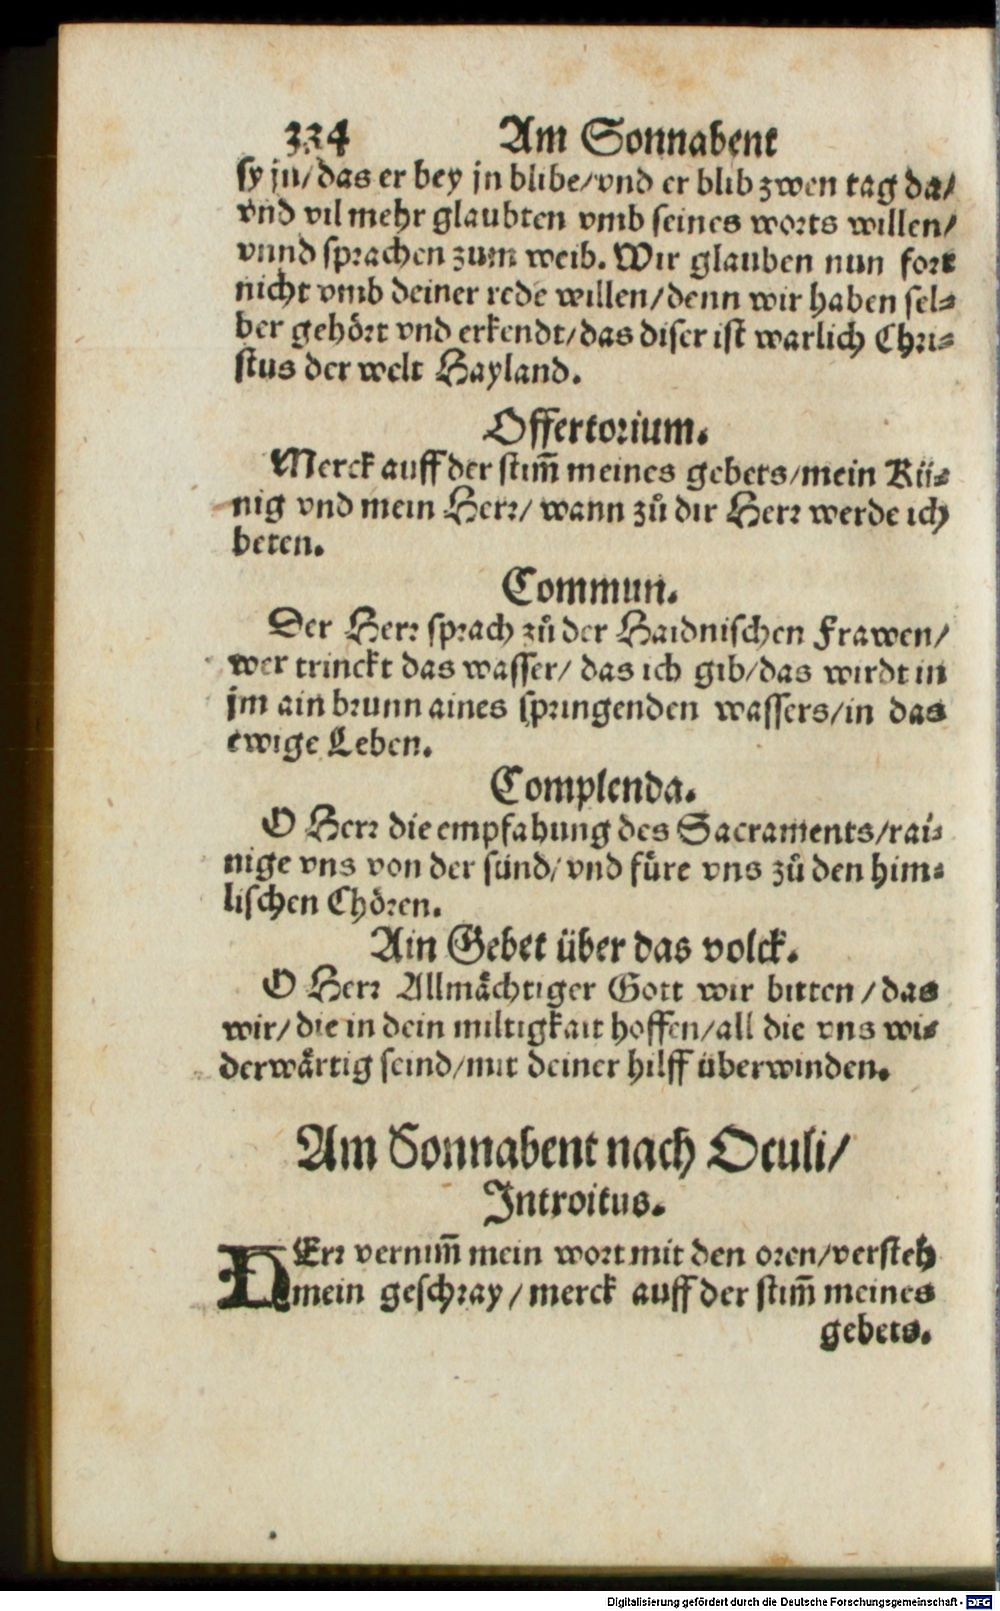 334 Am Sonnabent
sy jn/das er bey jn blibe/vnd er blib zwen tag da/
vnd vil mehr glaubten vmb seines worts willen/
vnnd sprachen zum weib. Wir glauben nun fort
nicht vmb deiner rede willen/denn wir haben sel⸗
ber gehört vnd erkendt/das diser ist warlich Chri⸗
stus der welt Hayland.
Offertorium.
Merck auff der stim̄ meines gebets/mein Kü⸗
nig vnd mein Herr/ wann zů dir Herr werde ich
beten.
Commun.
Der Herr sprach zů der Haidnischen Frawen/
wer trinckt das wasser/ das ich gib/das wirdt in
jm ain brunn aines springenden wassers/in das
ewige Leben.
Complenda.
O Herr die empfahung des Sacraments/rai⸗
nige vns von der sünd/vnd füre vns zů den him⸗
lischen Chören.
Ain Gebet über das volck.
O Herr Allmächtiger Gott wir bitten/das
wir/die in dein miltigkait hoffen/all die vns wi⸗
derwärtig seind/mit deiner hilff überwinden.
Am Sonnabent nach Oculi/
Introitus.
HErr vernim̄ mein wort mit den oren/versteh
mein geschray/merck auff der stim̄ meines
gebets.
Digitalisierung gefördert durch die Deutsche Forschungsgemeinschaft - DFG